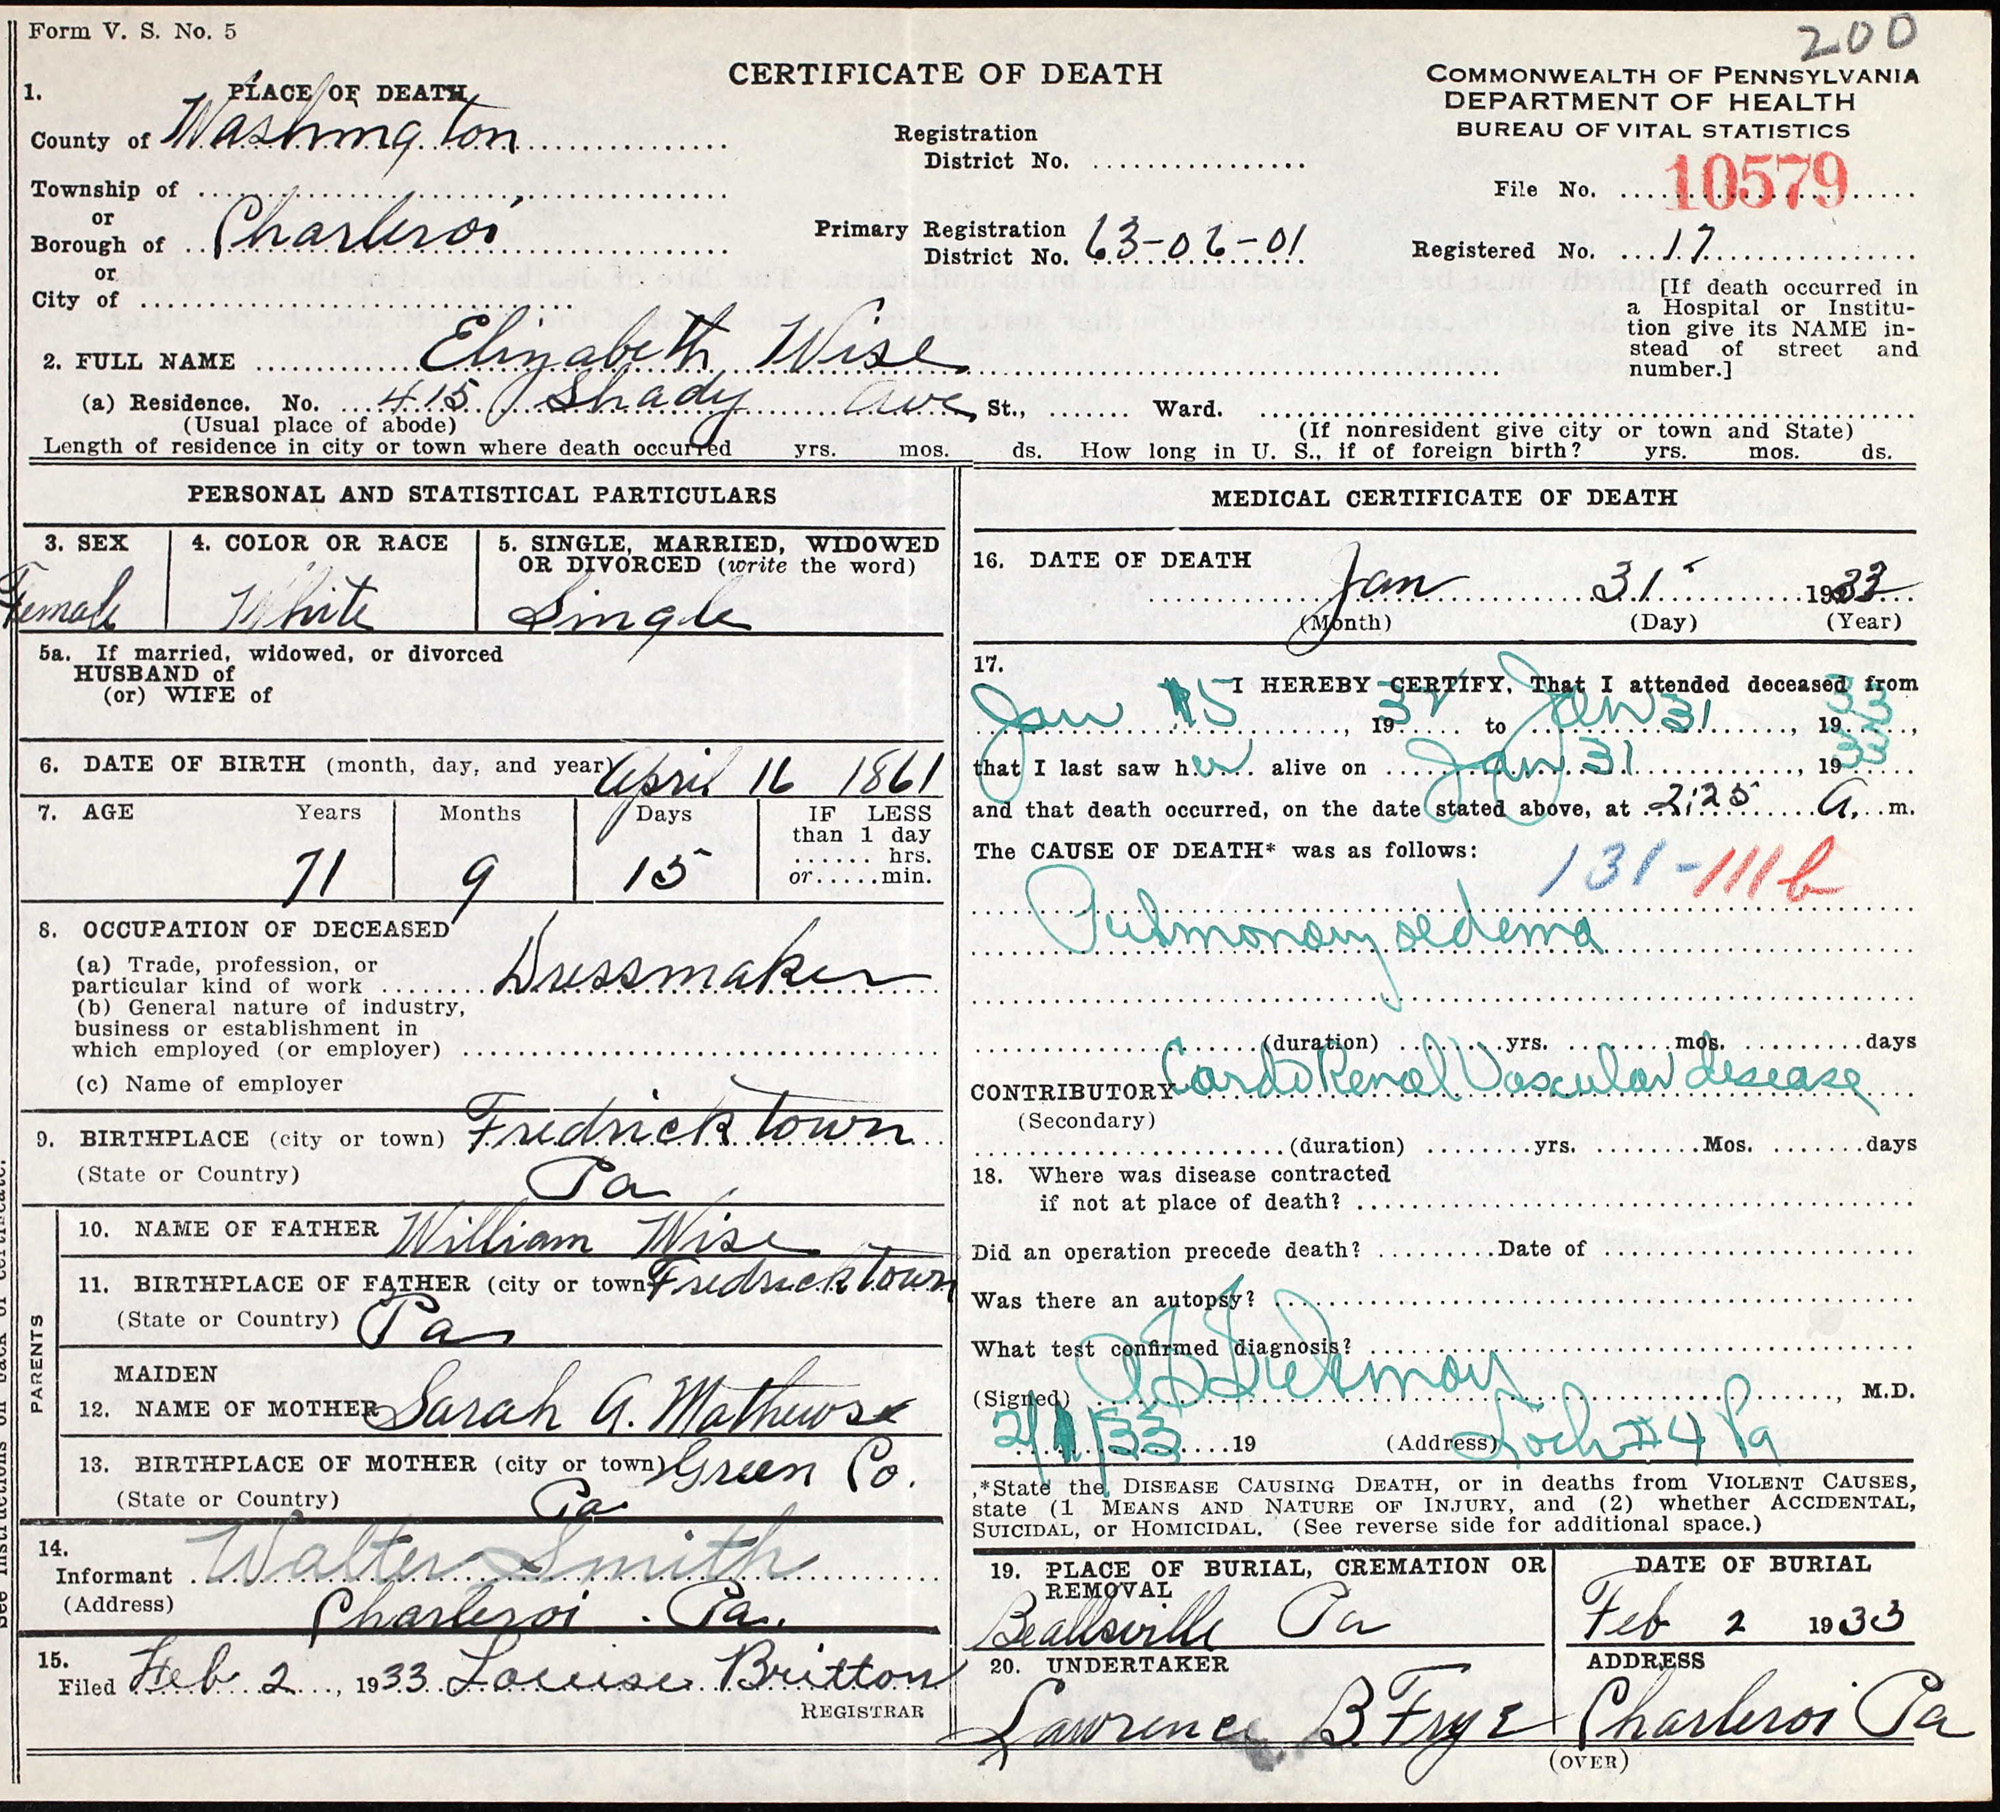 Form V. S. No. 5
200
CERTIFICATE OF DEATH
COMMONWEALTH OF PENNSYLVANIA
DEPARTMENT OF HEALTH
BUREAU OF VITAL STATISTICS
1. PLACE OF DEATH
County of Washington
Registration
District No.
File No. 10579
Township of
or
Borough of Charleroi
Primary Registration
District No. 63-06-01
Registered No. 17
or
City of
[If death occurred in
a Hospital or Institu-
tion give its NAME in-
stead of street and
number.]
2. FULL NAME Elizabeth Wise
(a) Residence. No. 415 Shady Ave St., Ward.
(Usual place of abode)
(If nonresident give city or town and State)
Length of residence in city or town where death occurred yrs. mos. ds. How long in U. S., if of foreign birth? yrs. mos. ds.
PERSONAL AND STATISTICAL PARTICULARS
3. SEX
Female
4. COLOR OR RACE
White
5. SINGLE, MARRIED, WIDOWED
OR DIVORCED (write the word)
Single
5a. If married, widowed, or divorced
HUSBAND of
(or) WIFE of
6. DATE OF BIRTH (month, day, and year) April 16 1861
7. AGE Years Months Days IF LESS
than 1 day
hrs.
or min.
71 9 15
8. OCCUPATION OF DECEASED
(a) Trade, profession, or
particular kind of work Dressmaker
(b) General nature of industry,
business or establishment in
which employed (or employer)
(c) Name of employer
9. BIRTHPLACE (city or town) Fredricktown
(State or Country) Pa
PARENTS
10. NAME OF FATHER William Wise
11. BIRTHPLACE OF FATHER (city or town) Fredricktown
(State or Country) Pa
MAIDEN
12. NAME OF MOTHER Sarah A. Mathews
13. BIRTHPLACE OF MOTHER (city or town) Green Co.
(State or Country) Pa
14.
Informant Walter Smith
(Address) Charleroi . Pa.
15.
Filed Feb 2, 1933 Louise Britton
REGISTRAR
See instructions on back of certificate.
MEDICAL CERTIFICATE OF DEATH
16. DATE OF DEATH
Jan 31 1933
(Month) (Day) (Year)
17. I HEREBY CERTIFY, That I attended deceased from
Jan 15, 19 to Jan 31, 1933,
that I last saw her alive on Jan 31, 1933
and that death occurred, on the date stated above, at 2:25 A. m.
The CAUSE OF DEATH* was as follows:
131-111b
Pulmonary oedema
(duration) yrs. mos. days
CONTRIBUTORY Cardo Renal Vascular disease
(Secondary)
(duration) yrs. Mos. days
18. Where was disease contracted
if not at place of death?
Did an operation precede death? Date of
Was there an autopsy?
What test confirmed diagnosis?
(Signed) , M.D.
2/1/33 19 (Address) Loch #4 Pa
*State the DISEASE CAUSING DEATH, or in deaths from VIOLENT CAUSES,
state (1 MEANS AND NATURE OF INJURY, and (2) whether ACCIDENTAL,
SUICIDAL, or HOMICIDAL. (See reverse side for additional space.)
19. PLACE OF BURIAL, CREMATION OR
REMOVAL
Beallsville Pa
DATE OF BURIAL
Feb 2 1933
20. UNDERTAKER
Lawrence B. Frye
ADDRESS
Charleroi Pa
(OVER)